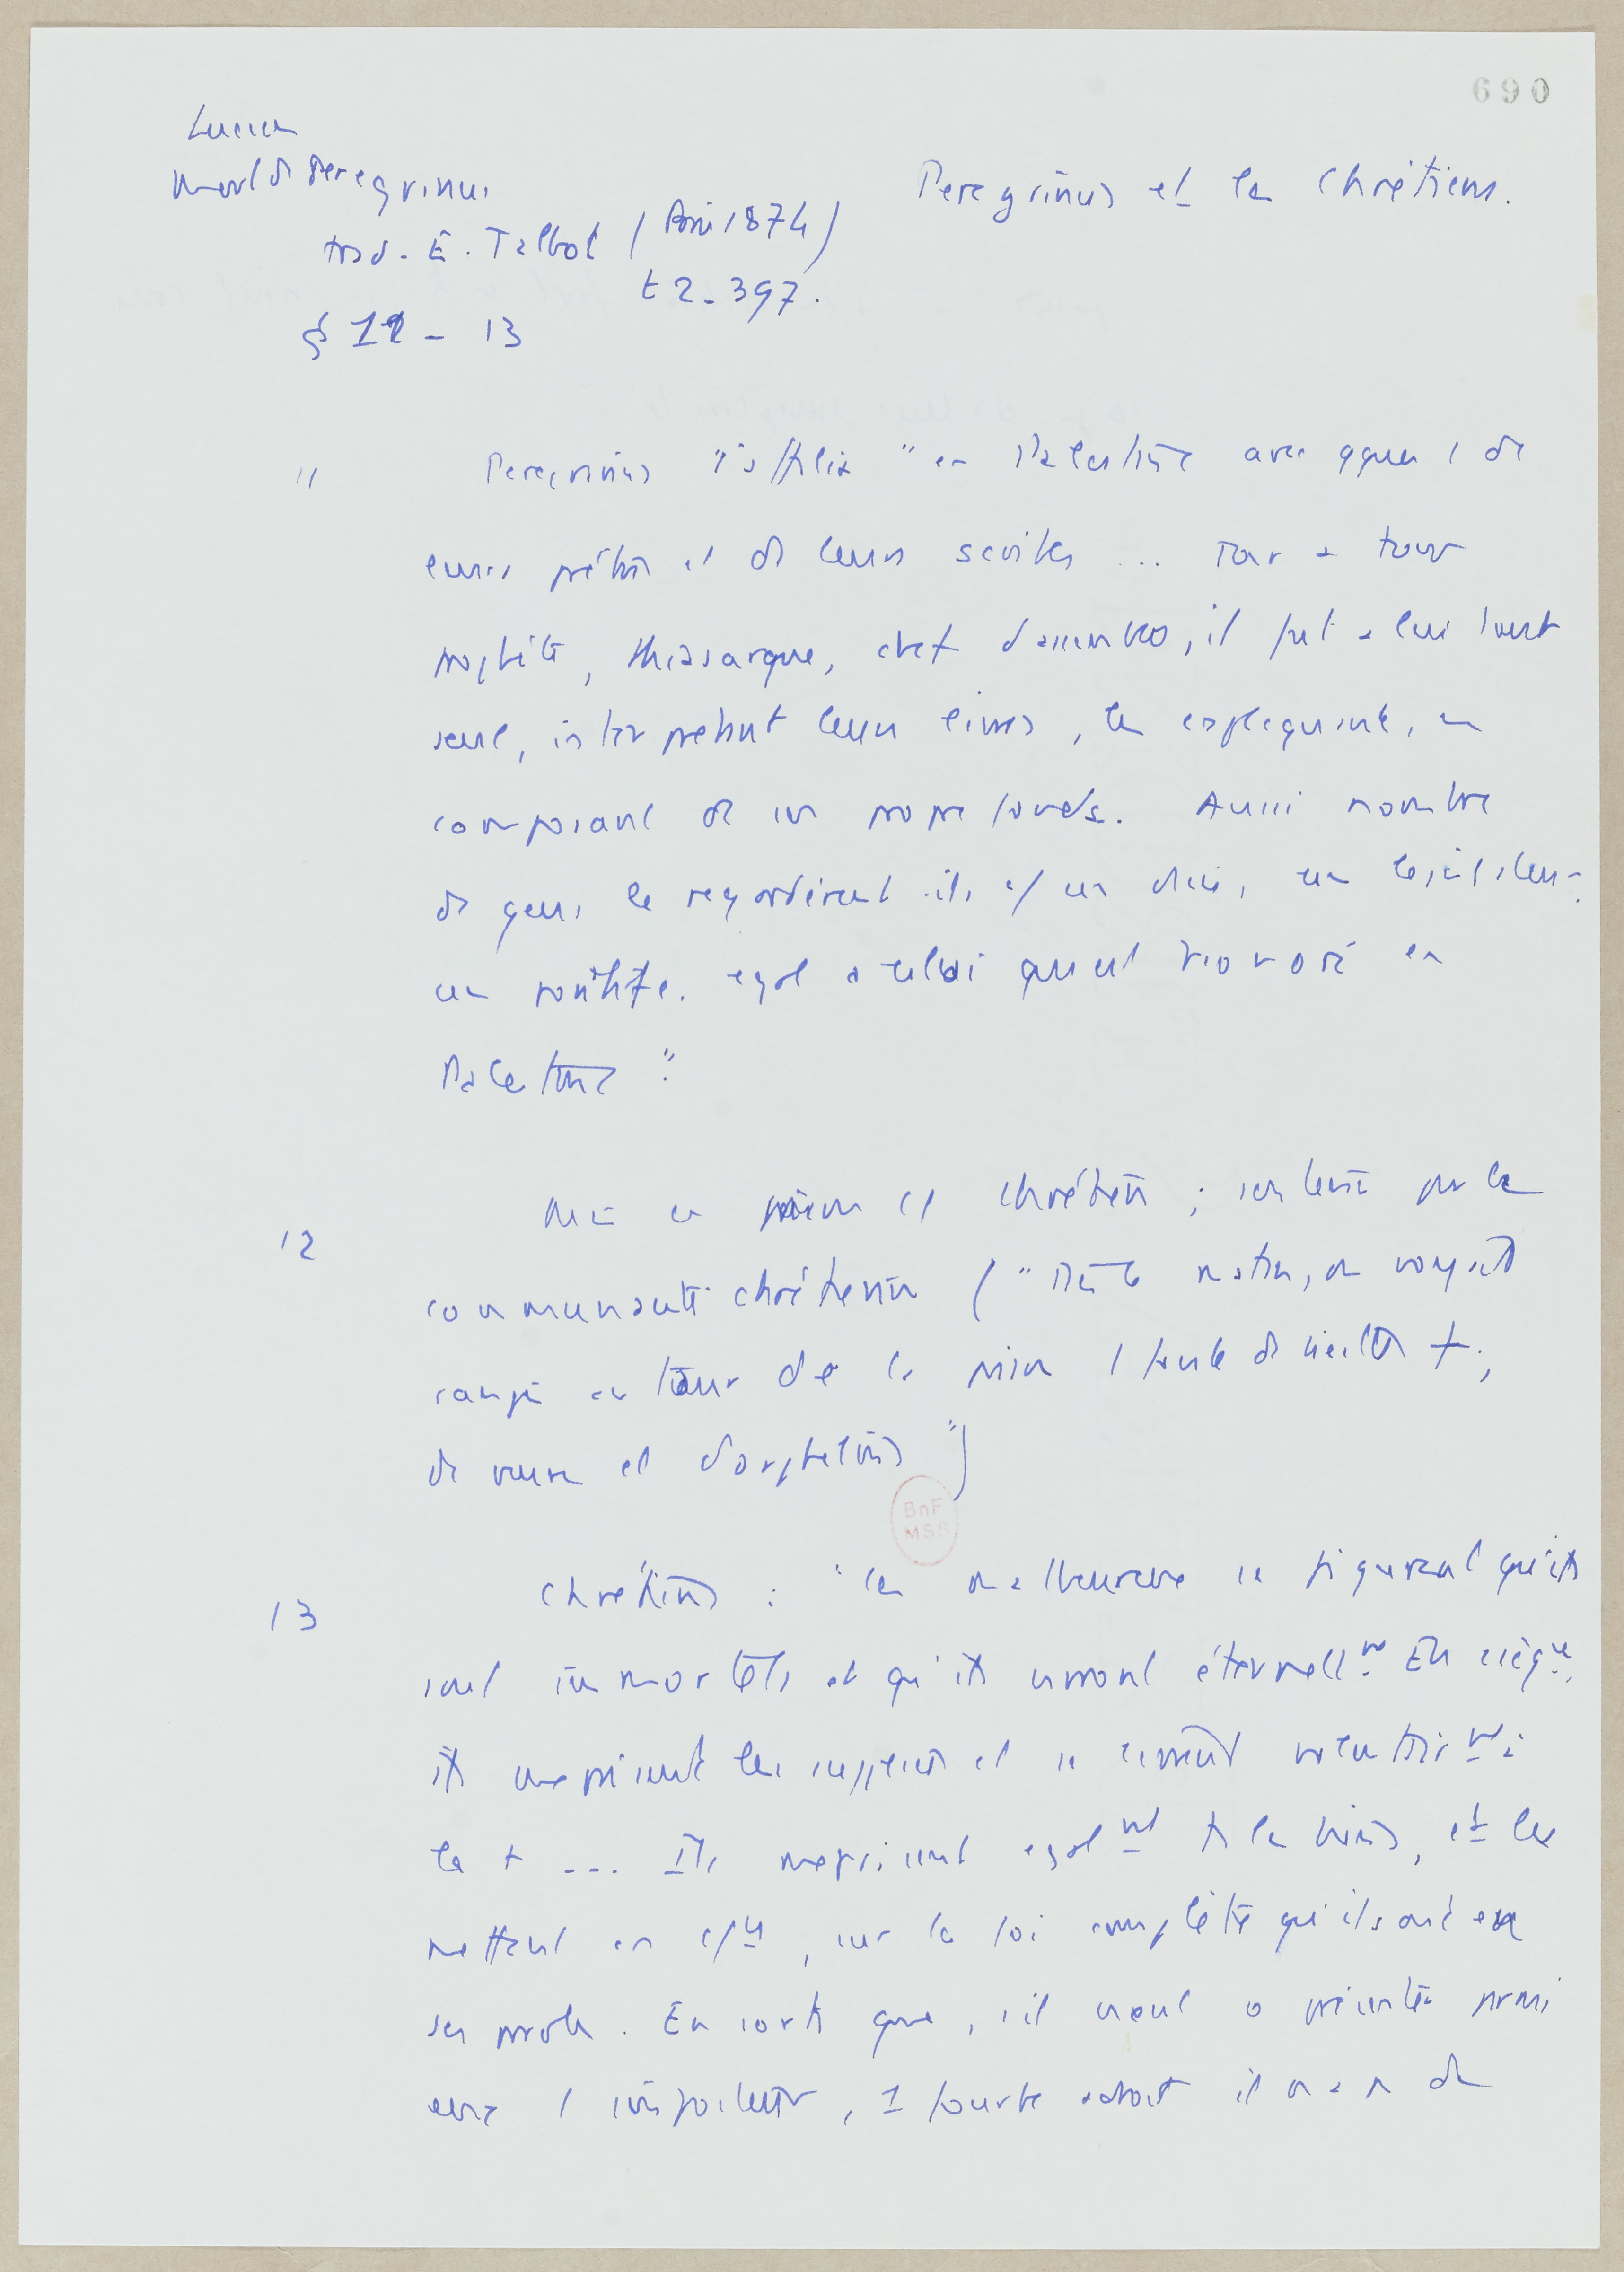 690
Lucien
Mort de Peregrinus
trad. E. Talbot (Paris 1874)
t 2 - 397.
§ 11 - 13
Peregrinus et les Chrétiens.
11 Peregrinus "s'affilia" en Palestine avec qques 1 de
leurs prêtres et de leurs scribes ... Tour à tour
prophète, thiasarque, chef d'assemblée, il fut à lui tout
seul, interprétant leurs livres, les expliquant, en
composant de son propre fonds. Aussi nombre
de gens le regardèrent-ils c/ un dieu, un législateur,
un pontife, égal à celui qui est honoré en
Palestine".
12 Mis en prison c/ chrétien ; soutenu par les
communautés chrétiennes ("Dès le matin, on voyait
rangés autour de la prison 1 foule de vieilles f.,
de veuves et d'orphelins")
BnF
MSS
13 Chrétiens : "ces malheureux se figurent qu'ils
sont immortels et qu'ils vivront éternellmt. En cséqu.
ils méprisent les supplices et se livrent volontairmt à
la + ... Ils méprisent égalmt ts les biens, et les
mettent en c/un, sur la foi complète qu'ils ont en
ses paroles. En sorte que, s'il vient à se présenter parmi
eux 1 imposteur, 1 fourbe adroit il n'a pas de